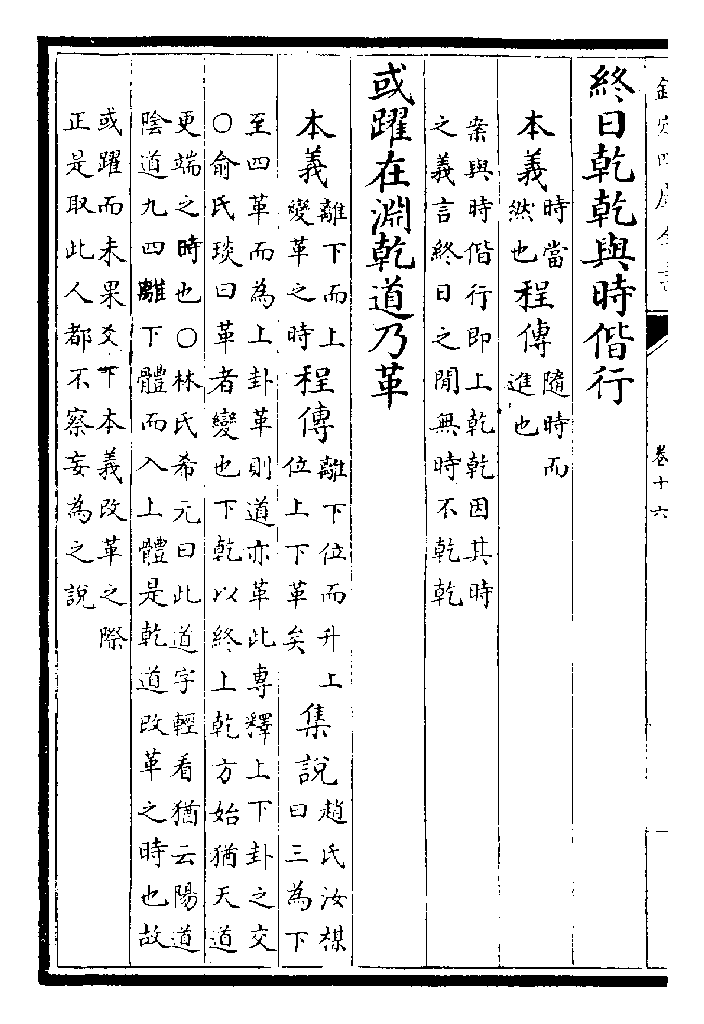 欽定四庫全書
卷十六
終日乾乾與時偕行
本義時當然也程傳隨時而進也
案與時偕行即上乾乾因其時
之義言終日之閒無時不乾乾
或躍在淵乾道乃革
本義離下而上變革之時程傳離下位而升上位上下革矣集說趙氏汝楳曰三為下
至四革而為上卦革則道亦革此專釋上下卦之交
○俞氏琰曰革者變也下乾以終上乾方始猶天道
更端之時也○林氏希元曰此道字輕看猶云陽道
陰道九四離下體而入上體是乾道改革之時也故
或躍而未果爻下本義改革之際
正是取此人都不察妄為之說